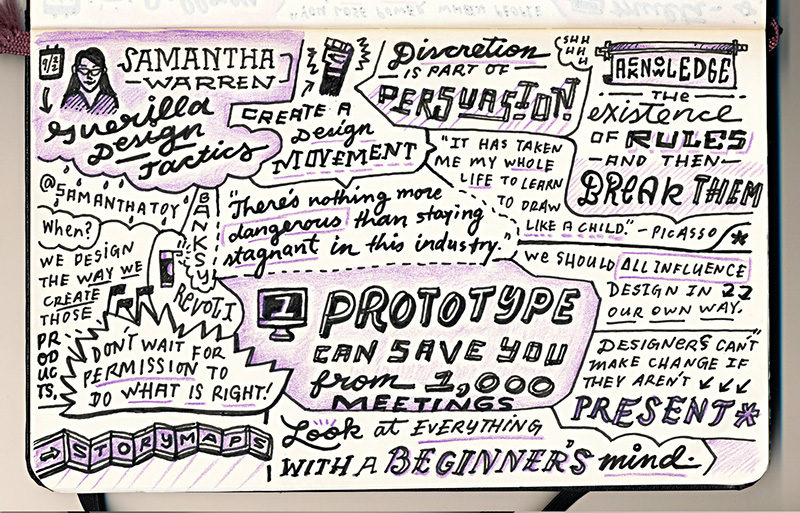 9/22
SAMANTHA
WARREN
Guerilla
Design
Tactics
@SAMANTHATOY
When?
WE DESIGN
THE WAY WE
CREATE
THOSE
PR
OD
UC
TS.
BANKSY
REVOLT
DON'T WAIT FOR
PERMISSION TO
DO WHAT IS RIGHT!
STORYMAPS
CREATE A
Design
MOVEMENT
"There's nothing more
dangerous than staying
stagnant in this industry."
1 PROTOTYPE
CAN SAVE YOU
from 1,000
MEETINGS
Look at EVERYTHING
WITH A BEGINNER'S mind.
Discretion
IS PART OF
PERSUASION
SHH
HHH
"IT HAS TAKEN
ME MY WHOLE
LIFE TO LEARN
TO DRAW
LIKE A CHILD." - PICASSO
AKNOWLEDGE
THE
existence
OF RULES
AND THEN
BREAK THEM
WE SHOULD ALL INFLUENCE
DESIGN IN
OUR OWN WAY.
DESIGNERS CAN'T
MAKE CHANGE IF
THEY AREN'T
PRESENT*